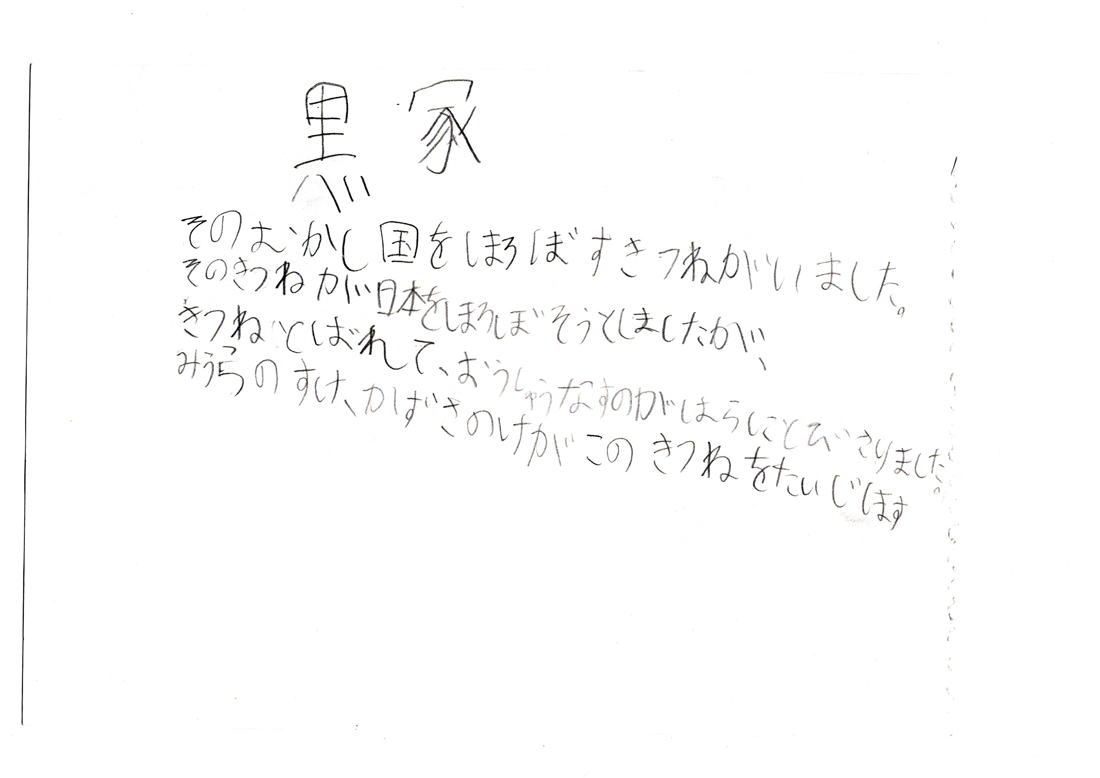 黒冢
そのむかし国をほろぼすきつねがいました。
そのきつねが日本をほろぼそうとしましたが、
きつねとばれて、おうしゅうなすのがはらにとびさりました。
みうらのすけ、かずさのすけがこのきつねをたいじします